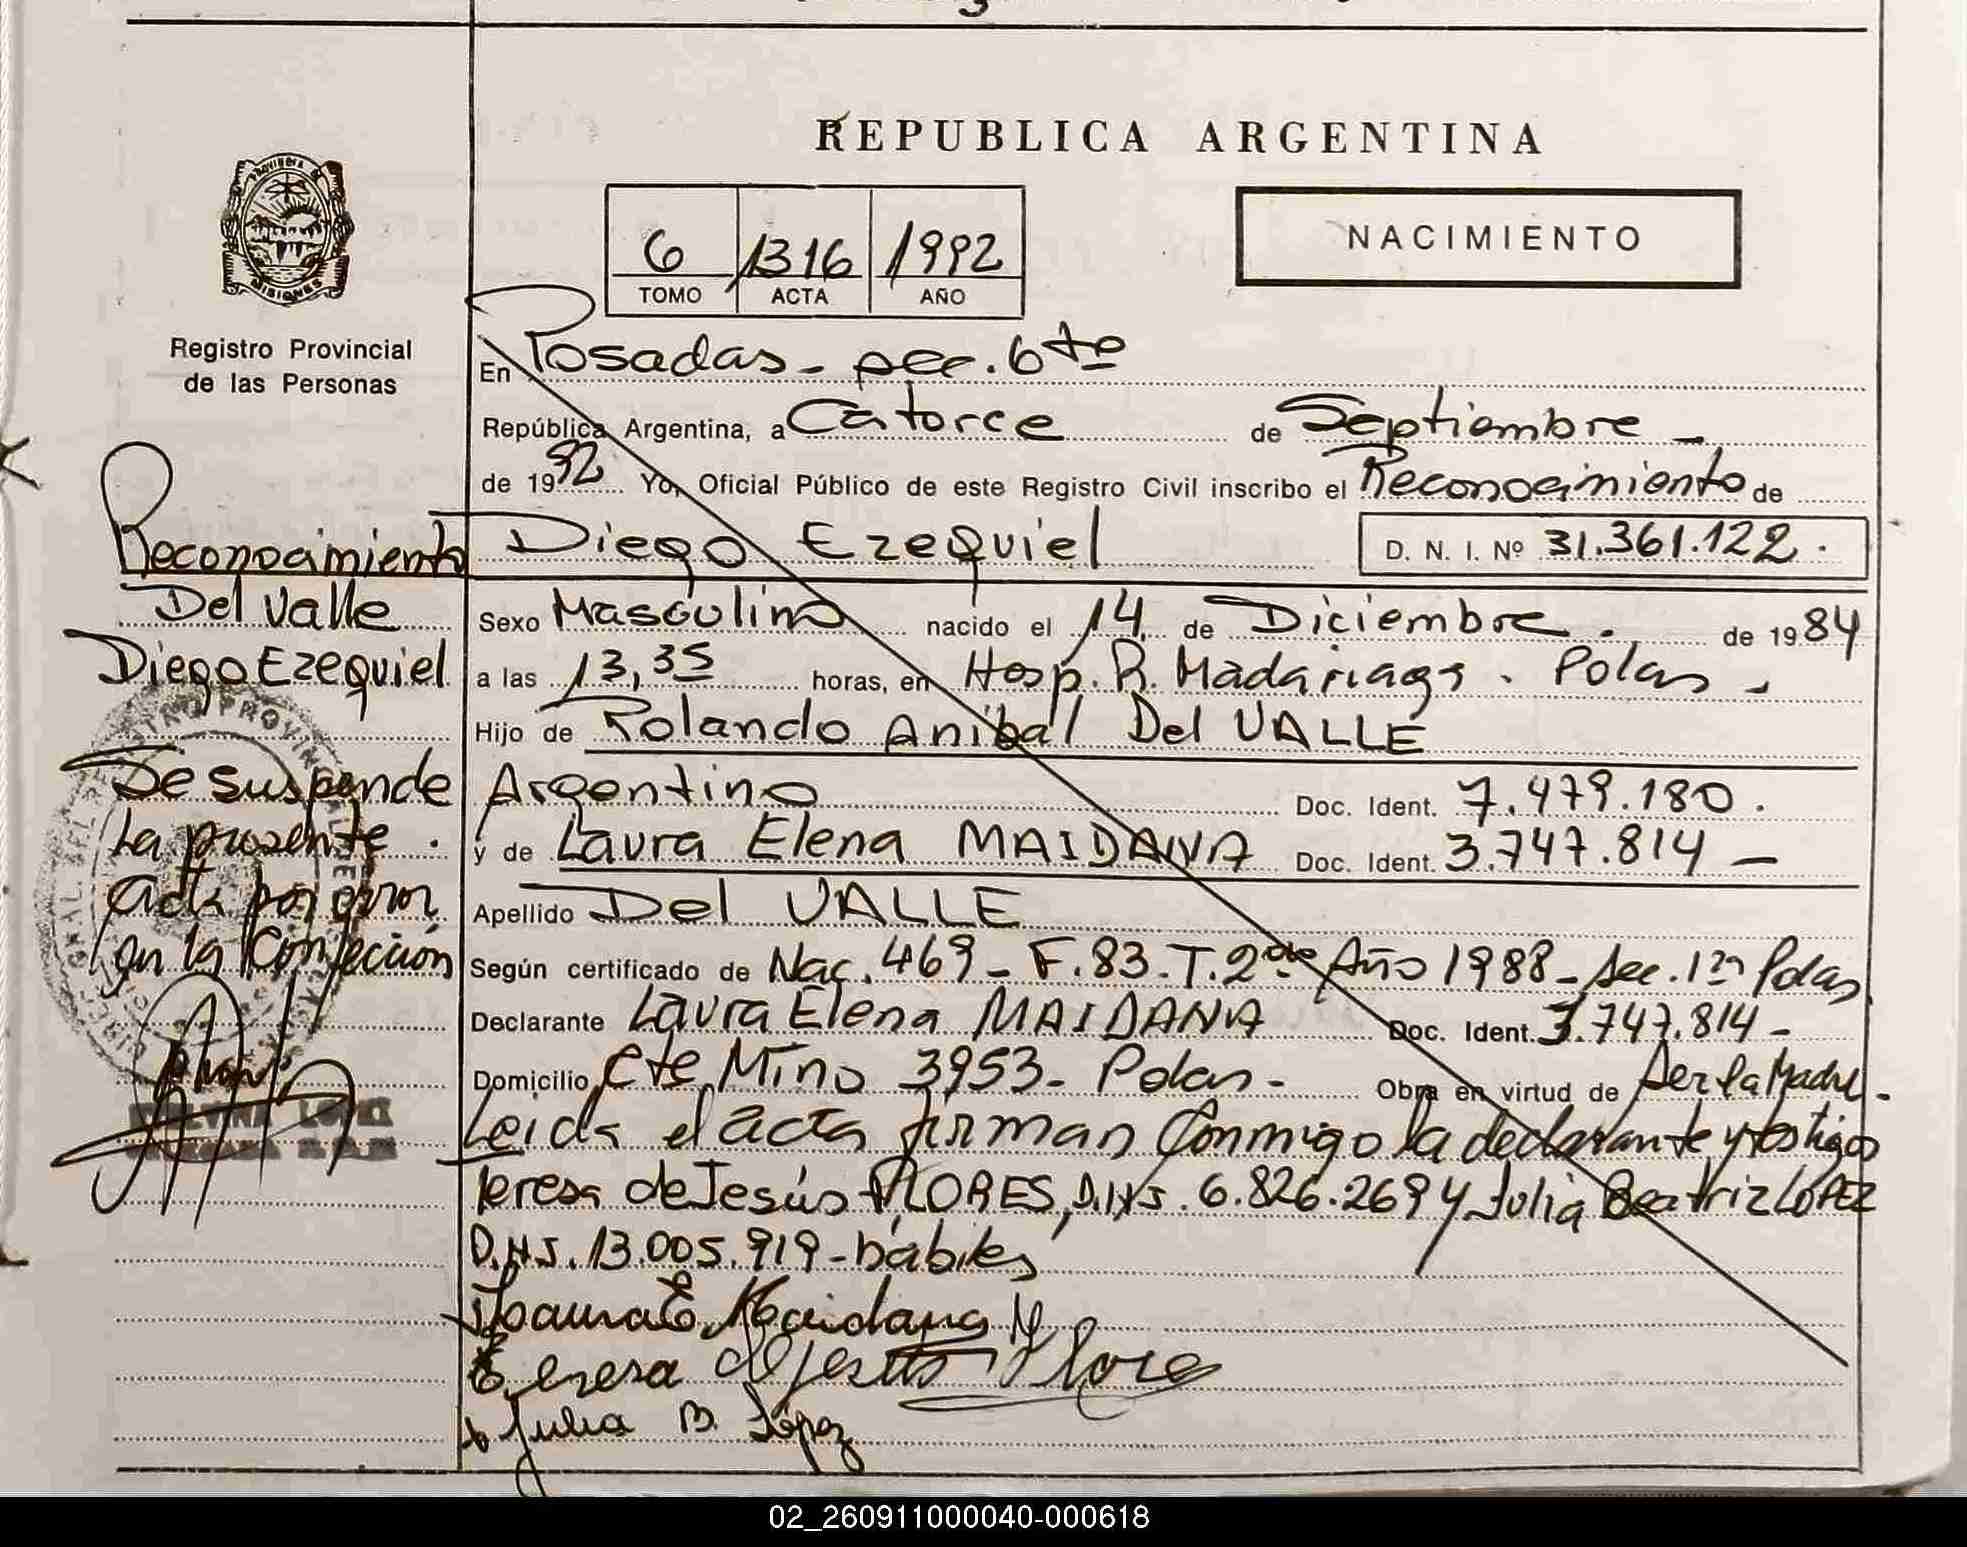 REPUBLICA ARGENTINA
6 1316 1992
TOMO ACTA AÑO
NACIMIENTO
PROVINCIA DE
MISIONES
Registro Provincial
de las Personas
En Posadas - sec. 6ta
República Argentina, a Catorce de Septiembre -
de 1992 Yo, Oficial Público de este Registro Civil inscribo el Reconocimiento de
Diego Ezequiel D. N. I. Nº 31.361.122.
Sexo Masculino nacido el 14 de Diciembre. de 1984
a las 13,35 horas, en Hosp. R. Madariaga. Pdas -
Hijo de Rolando Anibal Del VALLE
Argentino Doc. Ident. 7.479.180.
y de Laura Elena MAIDANA Doc. Ident. 3.747.814 -
Apellido Del VALLE
Según certificado de Nac. 469 - F. 83 - T. 2do Año 1988 - Sec. 1ra Pdas
Declarante Laura Elena MAIDANA Doc. Ident. 3.747.814 -
Domicilio Cte Miño 3953 - Pdas - Obra en virtud de ser la Madre -
Leida el acta firman conmigo la declarante y testigos
Teresa de Jesús FLORES, D.N.I. 6.826.269 y Julia Beatriz LOPEZ
D.N.I. 13.005.919 - hábiles
Laura E. Maidana
Teresa de Jesus Flores
Julia B. López
Reconocimiento
Del Valle
Diego Ezequiel
Se suspende
la presente
acta por error
en la Confección
LOPEZ
02_260911000040-000618